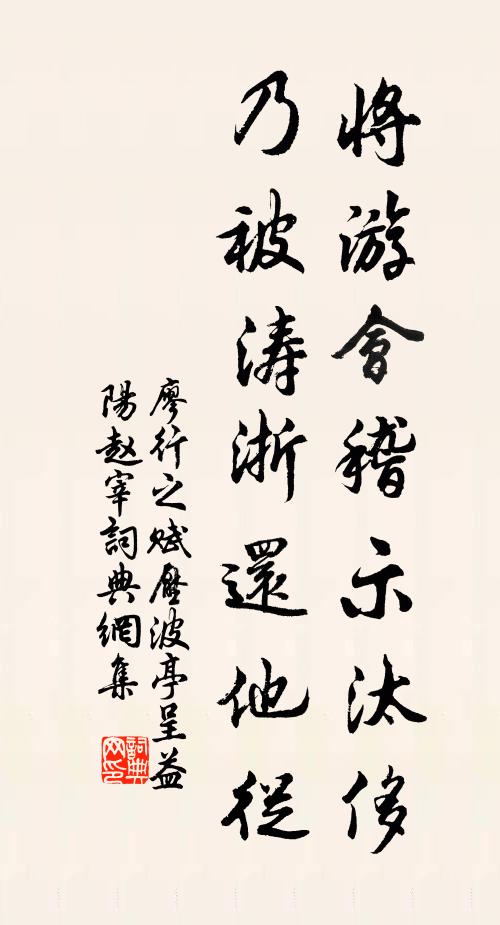 將游會稽示汰侈
乃被涛浙還他從
廖行之賦壓波亭呈益
陽赵宰詞典網集
詞典網印